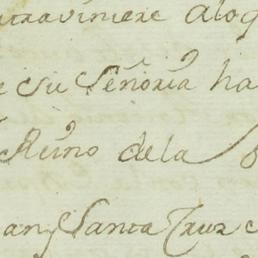 traviniere aloq
e su Señoria ha
Reino dela
an Santa Cruz